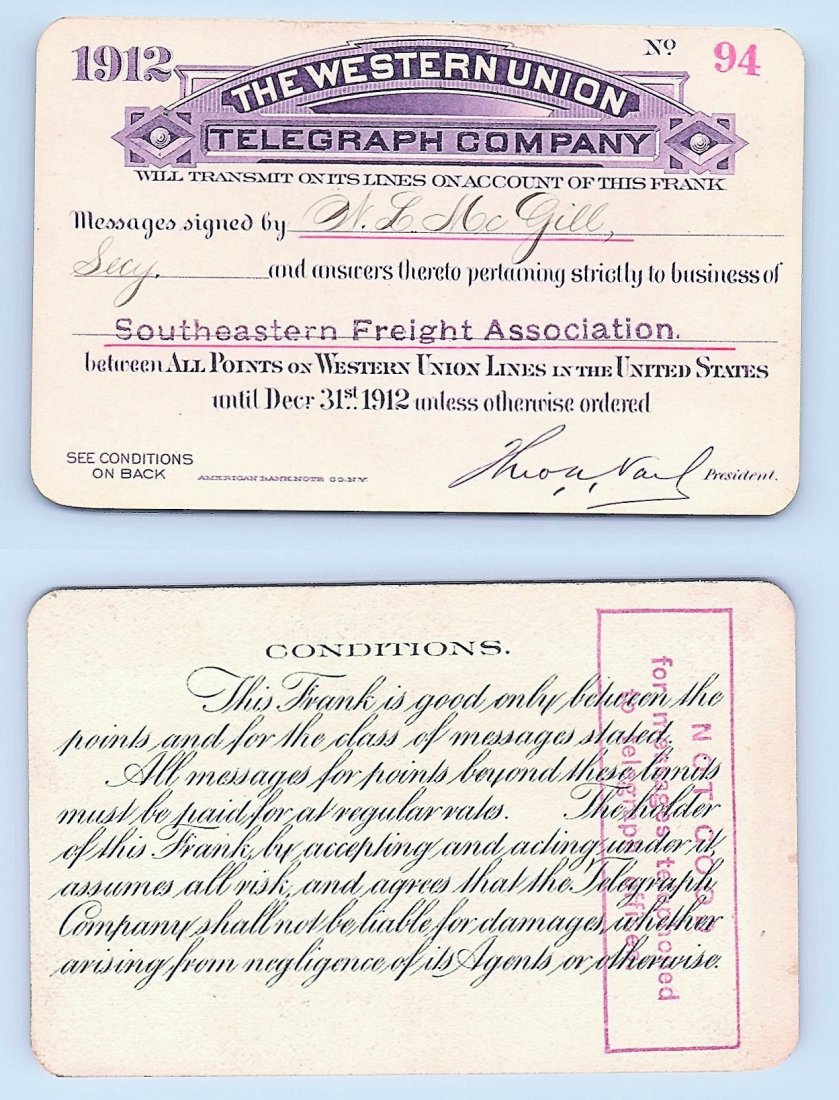 1912
Nº 94
THE WESTERN UNION
TELEGRAPH COMPANY
WILL TRANSMIT ON ITS LINES ON ACCOUNT OF THIS FRANK
Messages signed by W. L. Mc Gill,
Secy. and answers thereto pertaining strictly to business of
Southeastern Freight Association.
between ALL POINTS ON WESTERN UNION LINES IN THE UNITED STATES
until Decr 31st. 1912 unless otherwise ordered
SEE CONDITIONS
ON BACK
AMERICAN BANK NOTE CO. N.Y.
Theo. N. Vail President.
CONDITIONS.
This Frank is good only between the
points and for the class of messages stated.
All messages for points beyond these limits
must be paid for at regular rates. The holder
of this Frank, by accepting and acting under it,
assumes all risk, and agrees that the Telegraph
Company shall not be liable for damages, whether
arising from negligence of its Agents or otherwise.
NOT GOOD
for messages telephoned
to telegraph offices